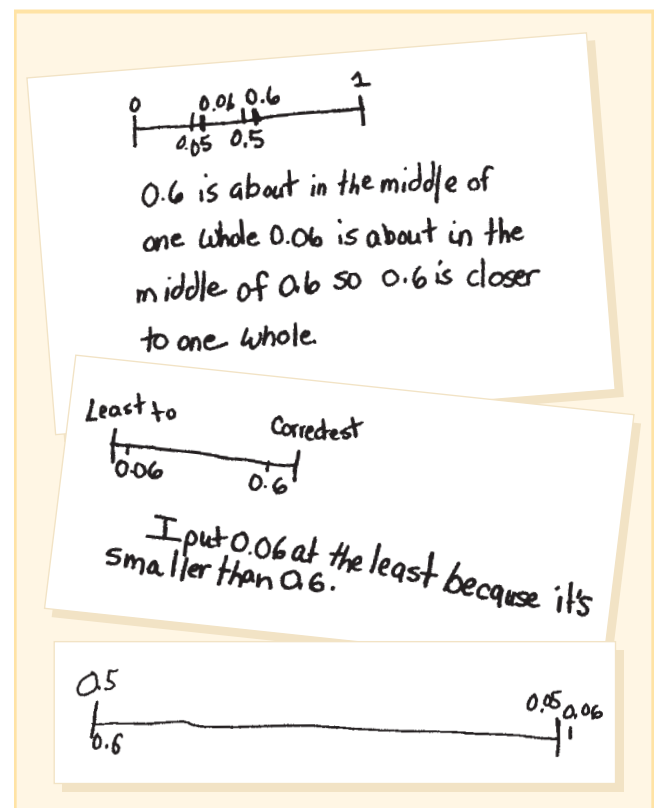 0 0.06 0.6 1
0.05 0.5
0.6 is about in the middle of
one whole 0.06 is about in the
middle of 0.6 so 0.6 is closer
to one whole.
Least to Correctest
0.06 0.6
I put 0.06 at the least because it's
smaller than 0.6.
0.5 0.05 0.06
0.6